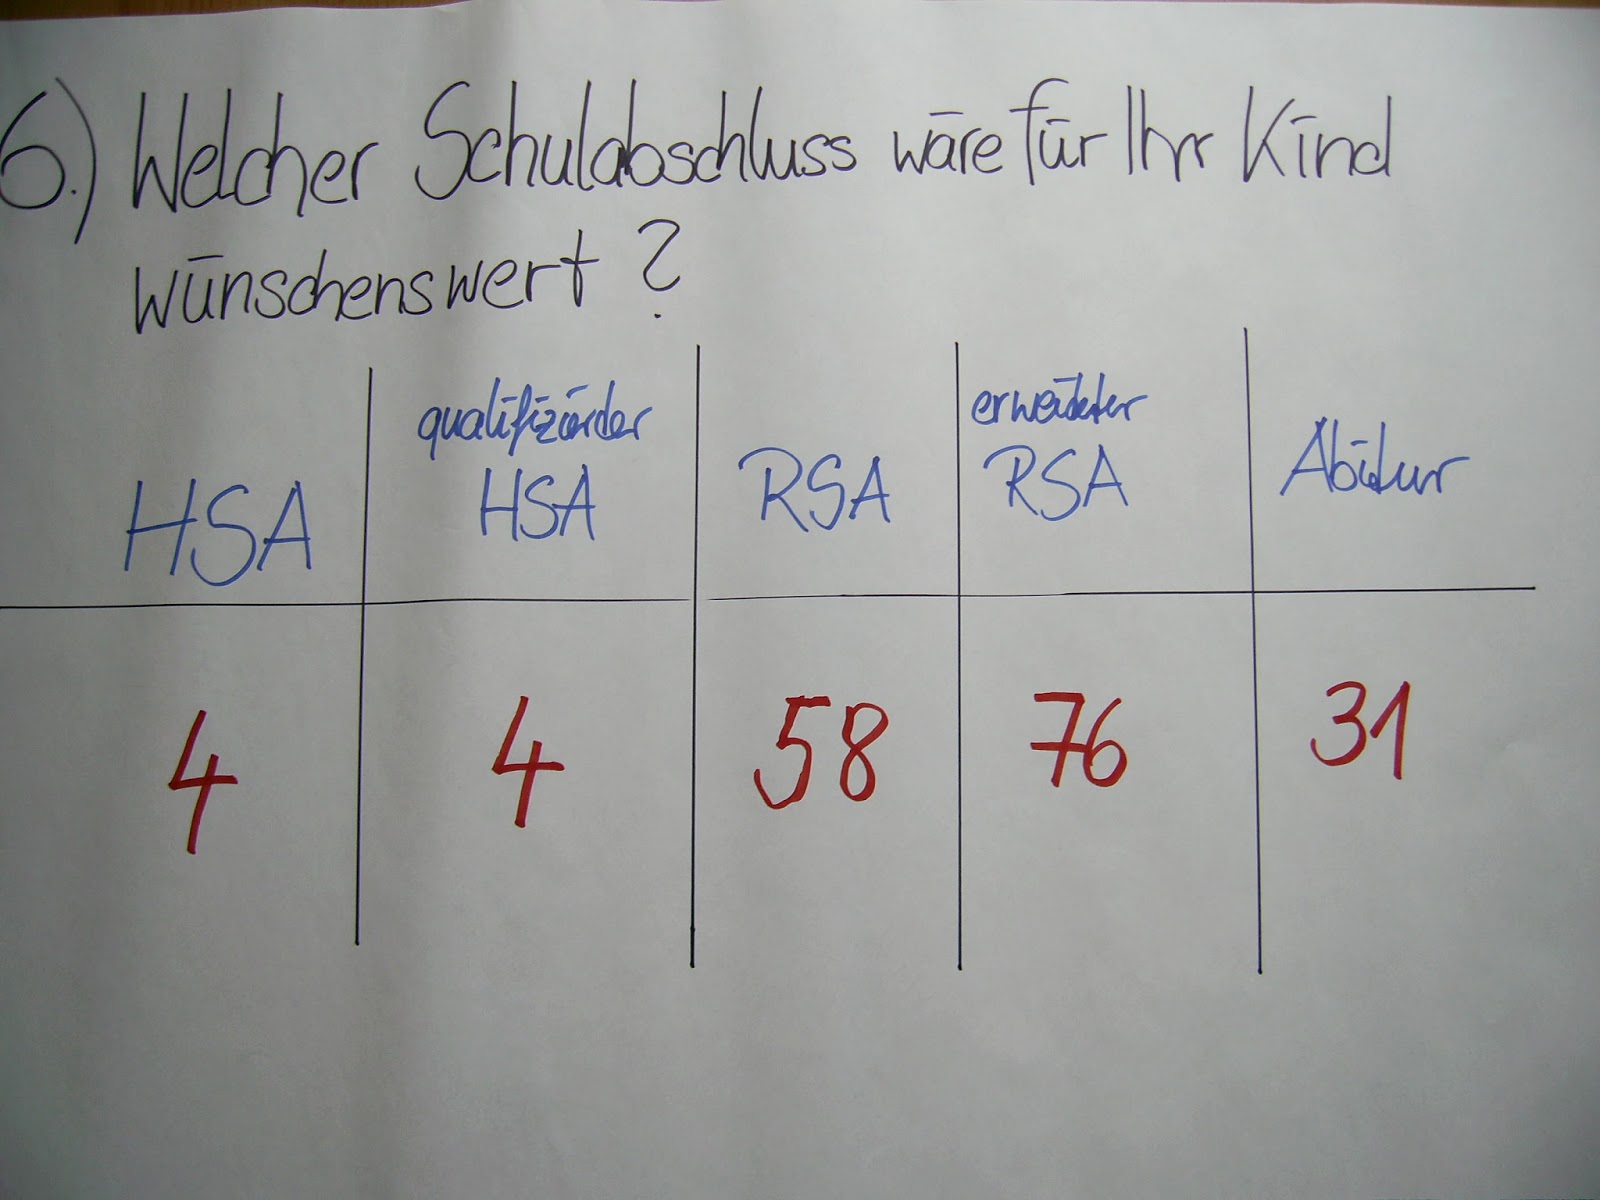 6.) Welcher Schulabschluss wäre für Ihr Kind
wünschenswert?
HSA
qualifizierder
HSA
RSA
erweiterter
RSA
Abitur
4
4
58
76
31